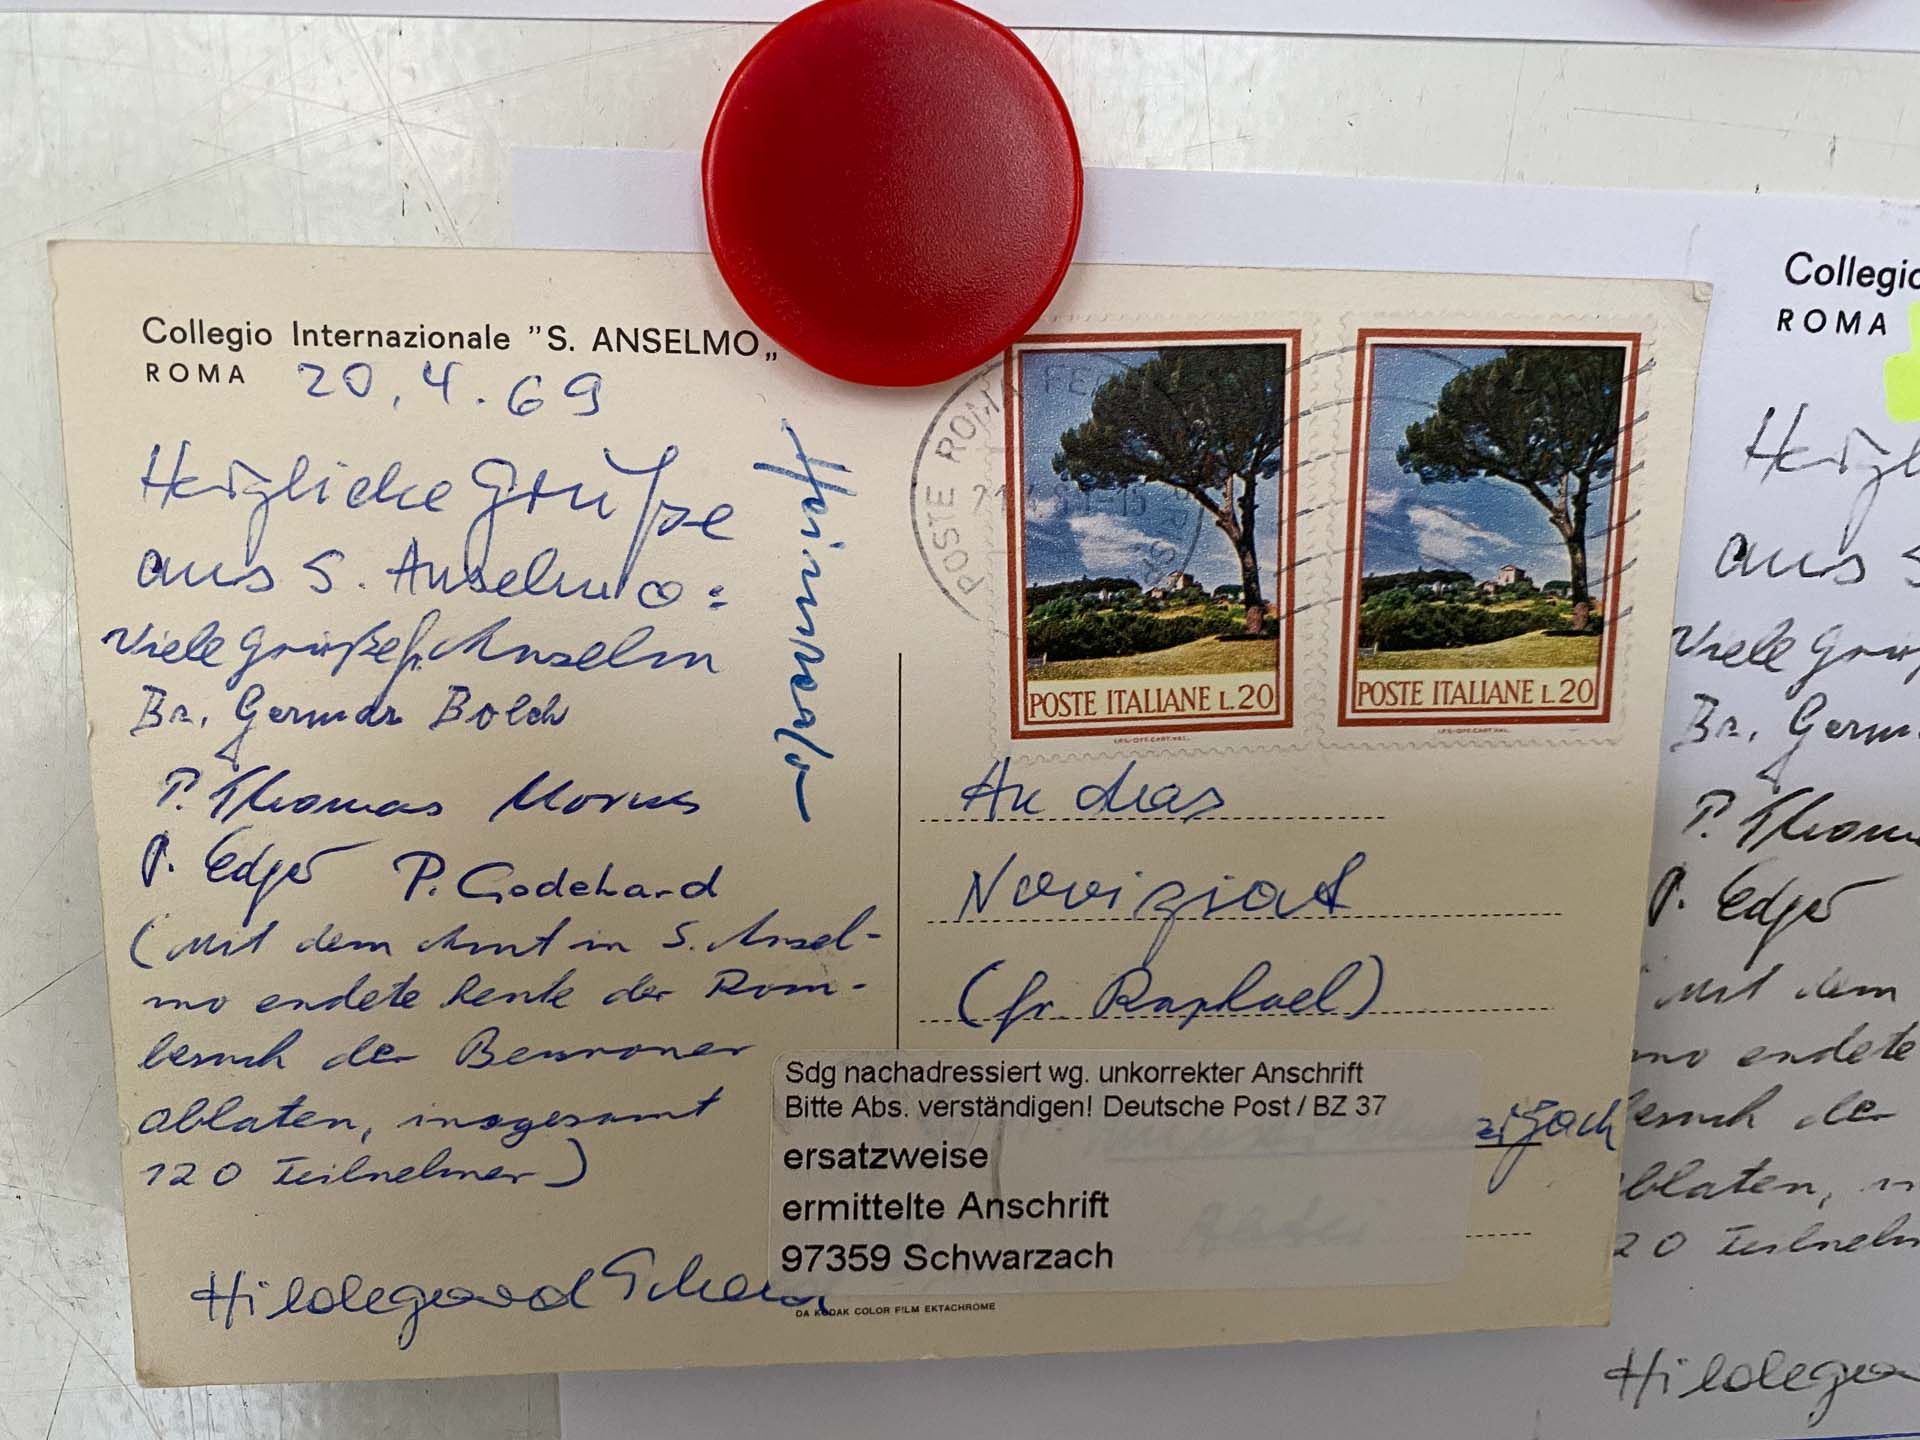 Collegio Internazionale "S. ANSELMO„
ROMA
20.4.69
Herzliche Grüße
aus S. Anselmo:
Viele Grüße fr. Anselm
Br. German Bolch
P. Thomas Morus
P. Edgar P. Godehard
(Mit dem Amt in S. Ansel-
mo endete heute der Rom-
besuch der Beuroner
Oblaten, insgesamt
120 Teilnehmer)
Hildegard
POSTE ROMA
POSTE ITALIANE L.20
POSTE ITALIANE L.20
An das
Noviziat
(fr. Raphael)
Sdg nachadressiert wg. unkorrekter Anschrift
Bitte Abs. verständigen! Deutsche Post / BZ 37
ersatzweise
ermittelte Anschrift
97359 Schwarzach
DA KODAK COLOR FILM EKTACHROME
Collegio
ROMA
aus S
Viele
Br. Germ
P. Thom
P. Edgar
Mit dem
mo endete
besuch der
blaten,
20 Teilneh
Hildega